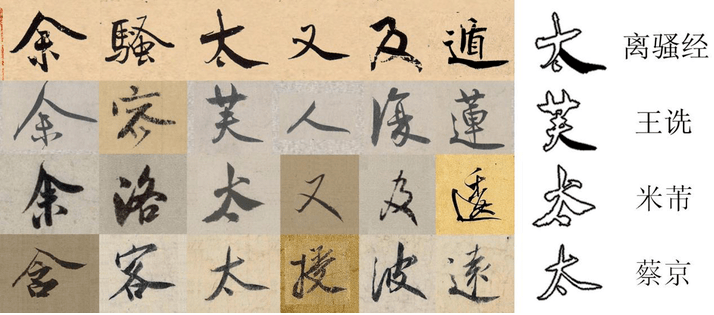 余騷太又及遁 太 离骚经
余容芙人復蓮 芙 王诜
余洛太又及 太 米芾
含客太波遠 太 蔡京